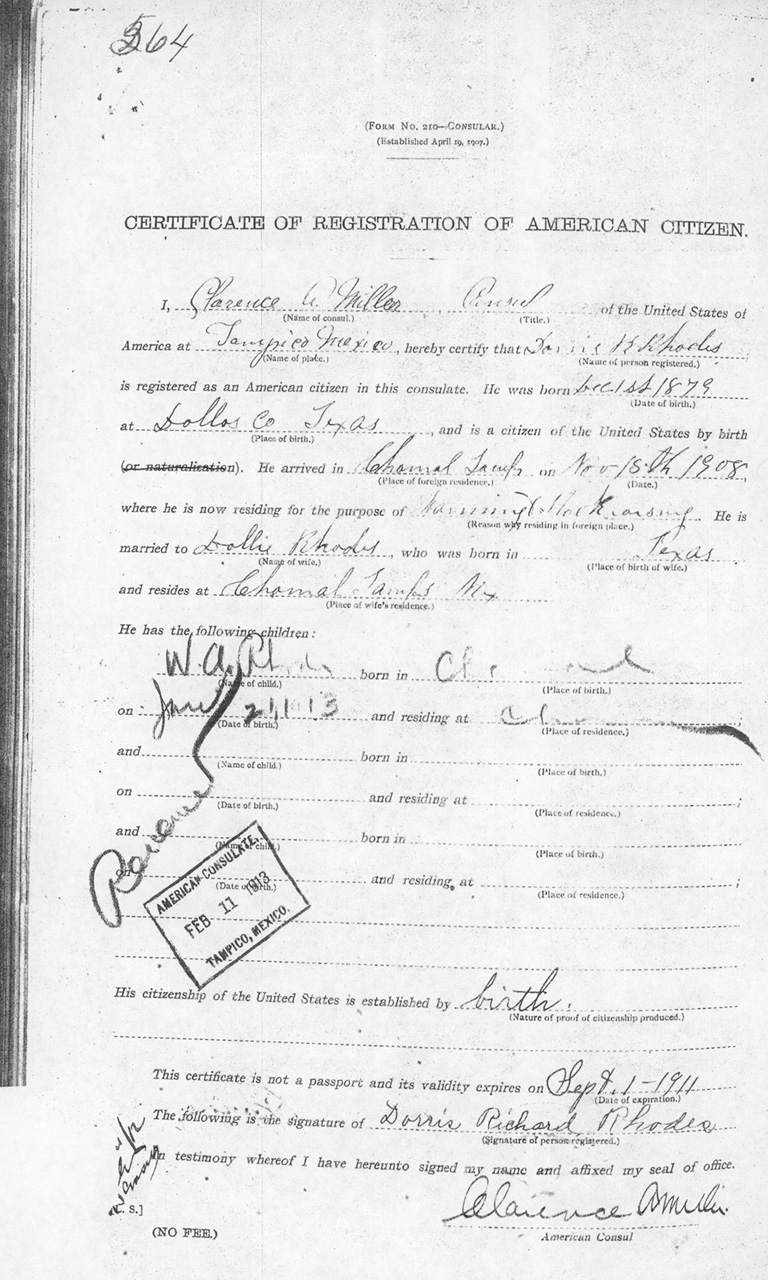 364
(FORM NO. 210—CONSULAR.)
(Established April 19, 1907.)
CERTIFICATE OF REGISTRATION OF AMERICAN CITIZEN.
I, Clarence A. Miller, Consul of the United States of
(Name of consul.) (Title.)
America at Tampico Mexico, hereby certify that Dorris R Rhodes
(Name of place.) (Name of person registered.)
is registered as an American citizen in this consulate. He was born Dec 1st 1879
(Date of birth.)
at Dollos Co Texas, and is a citizen of the United States by birth
(Place of birth.)
(or naturalization). He arrived in Chamal Tamps on Nov-18th 1908,
(Place of foreign residence.) (Date.)
where he is now residing for the purpose of Farming & Stock raising. He is
(Reason why residing in foreign place.)
married to Dollie Rhodes, who was born in Texas
(Name of wife.) (Place of birth of wife.)
and resides at Chamal Tamps Mx
(Place of wife's residence.)
He has the following children:
W. A. born in
(Name of child.) (Place of birth.)
on 21, 1913 and residing at ;
(Date of birth.) (Place of residence.)
and born in
(Name of child.) (Place of birth.)
on and residing at ;
(Date of birth.) (Place of residence.)
and born in
(Name of child.) (Place of birth.)
on and residing at ;
(Date of birth.) (Place of residence.)
AMERICAN CONSULATE,
FEB 11 1913
TAMPICO, MEXICO.
His citizenship of the United States is established by birth.
(Nature of proof of citizenship produced.)
This certificate is not a passport and its validity expires on Sept. 1-1911
(Date of expiration.)
The following is the signature of Dorris Richard Rhodes
(Signature of person registered.)
In testimony whereof I have hereunto signed my name and affixed my seal of office.
[L. S.]
Clarence A Miller.
(NO FEE.)
American Consul